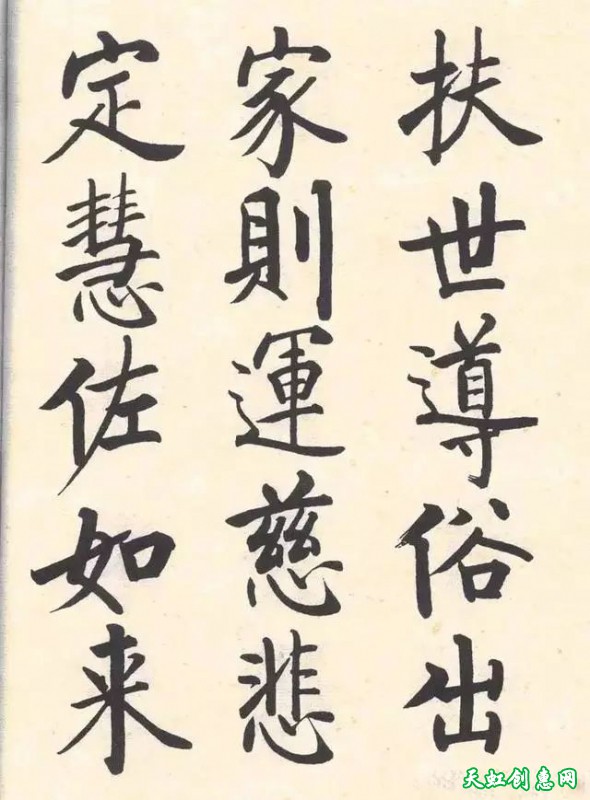 扶世導俗出
家則運慈悲
定慧佐如来
天虹创惠网